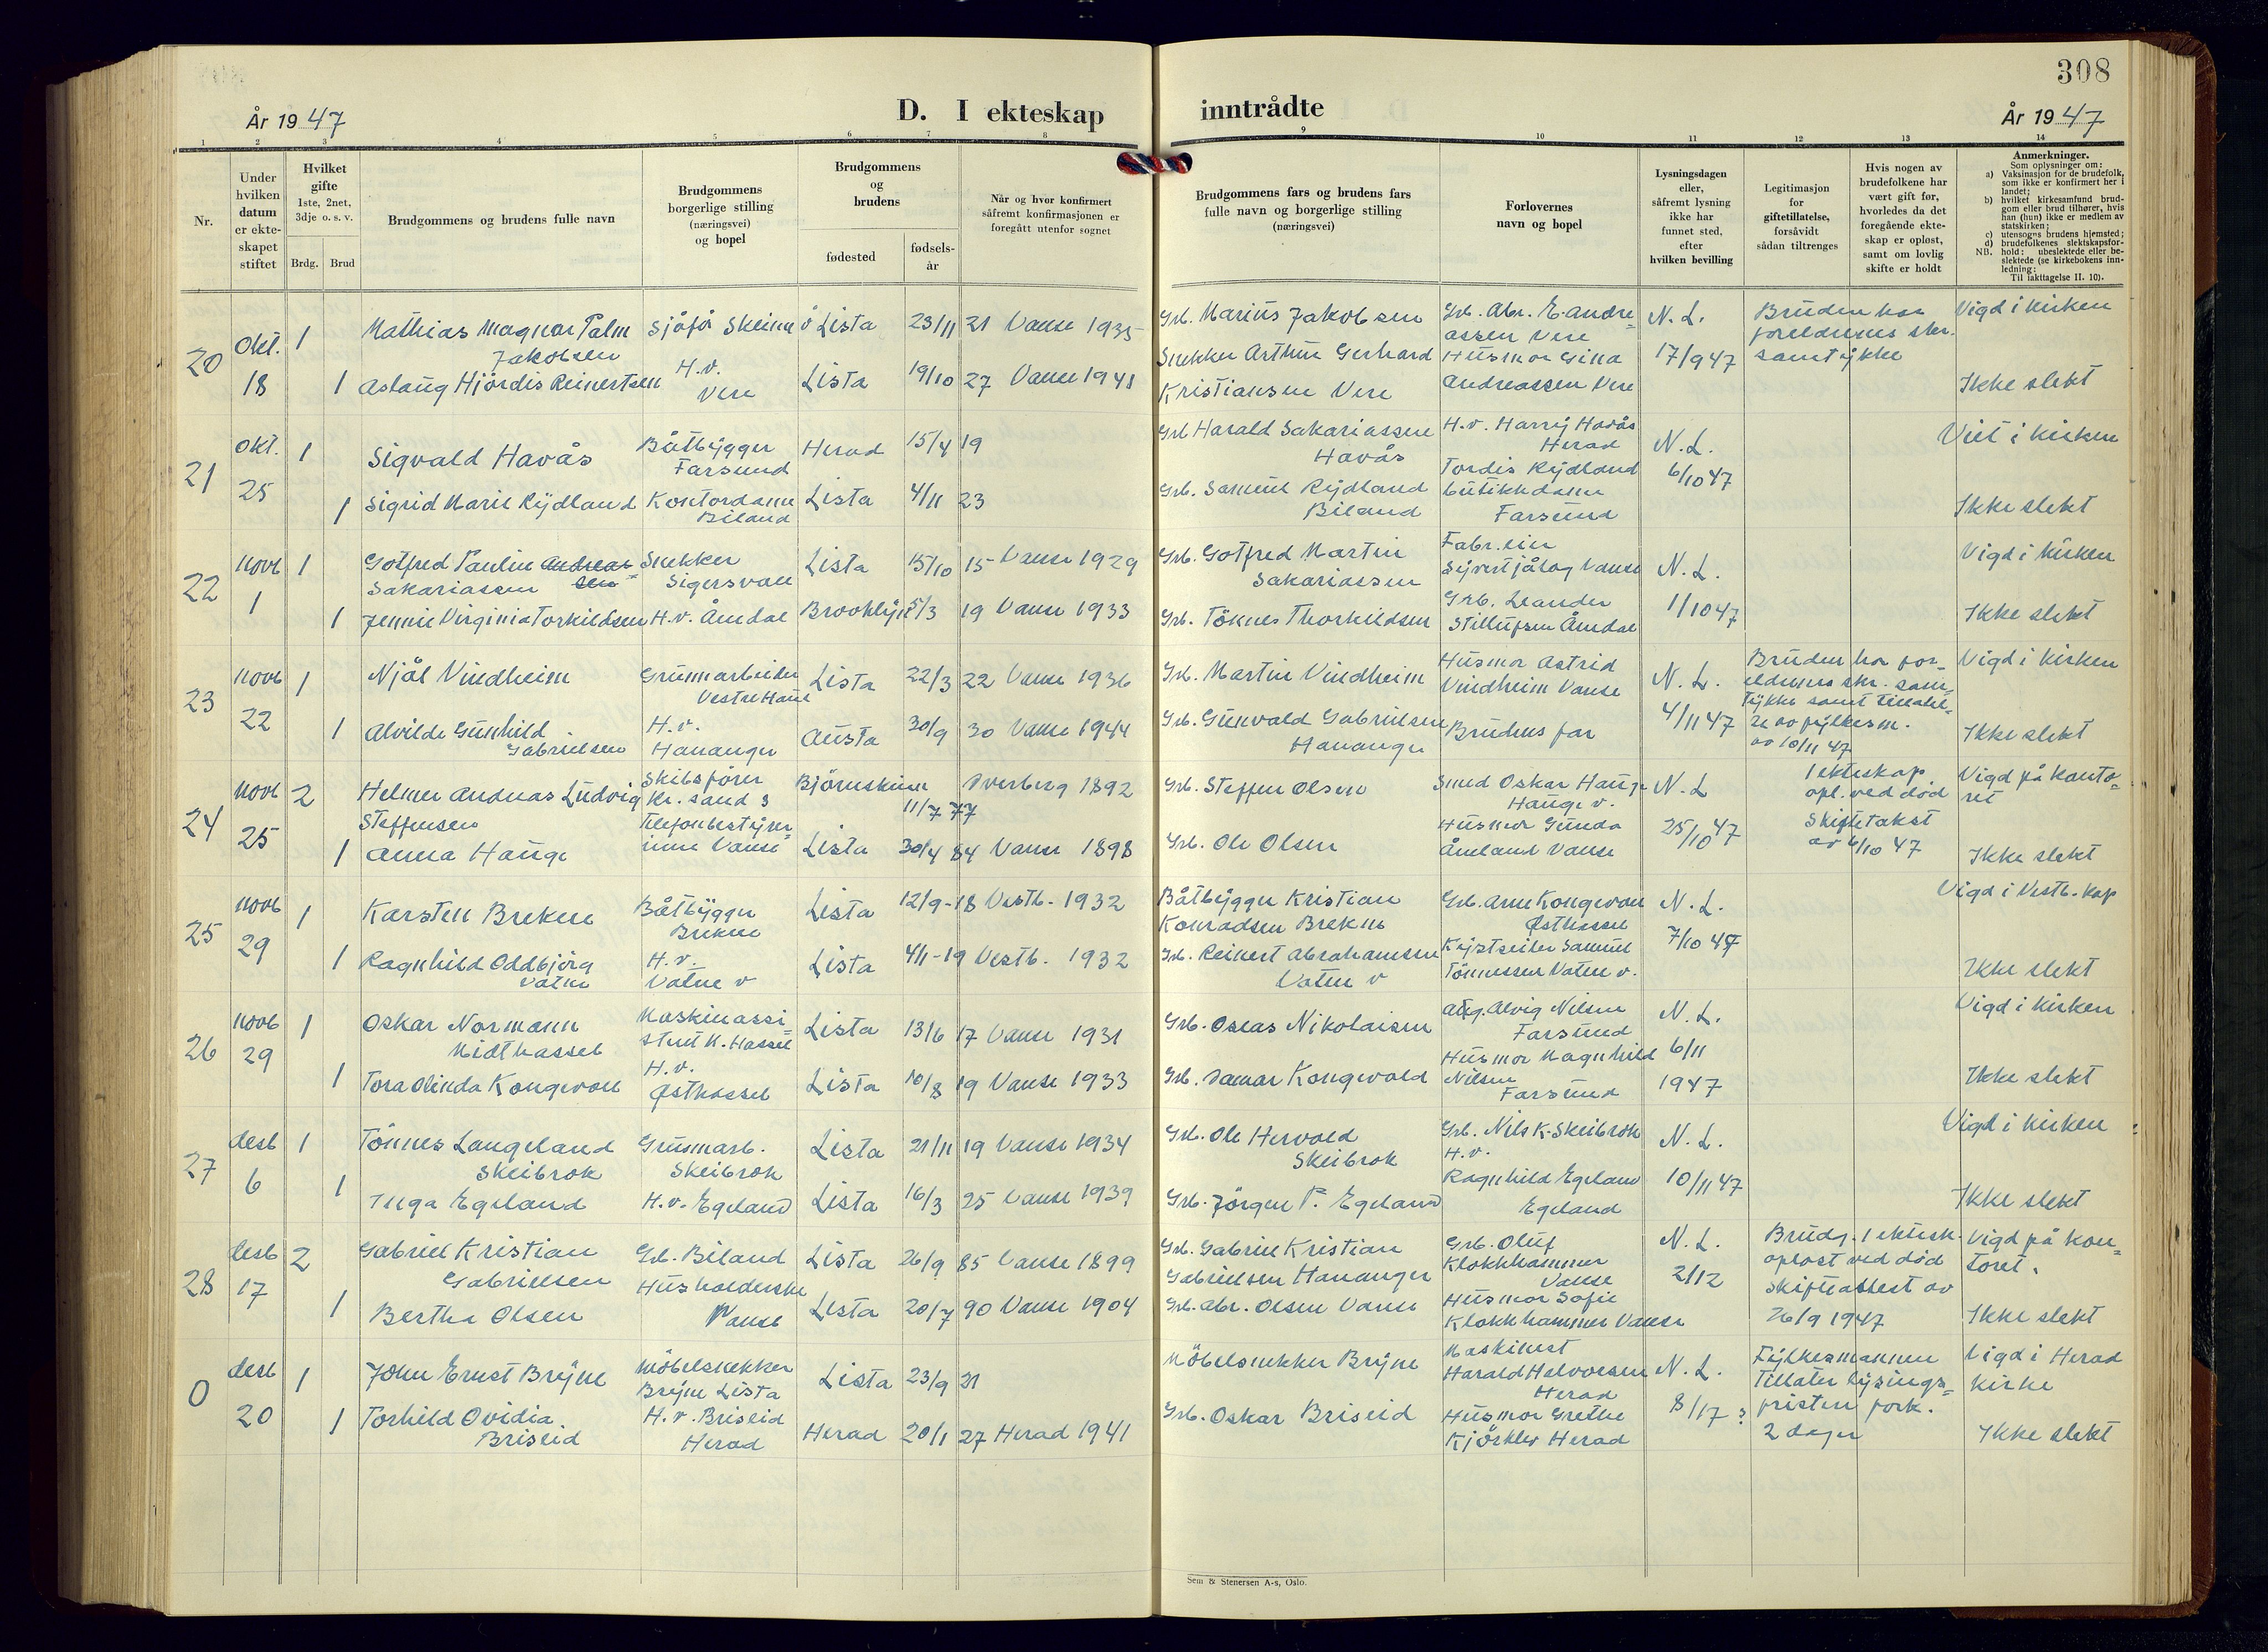 308
År 1947
D. I ekteskap
inntrådte
År 1947
1 2 3 4 5 6 7 8 9 10 11 12 13 14
Nr.
Under
hvilken
datum
er ekte-
skapet
stiftet
Hvilket
gifte
1ste, 2net,
3dje o. s. v.
Brdg. Brud
Brudgommens og brudens fulle navn
Brudgommens
borgerlige stilling
(næringsvei)
og bopel
Brudgommens
og
brudens
fødested
fødsels-
år
Når og hvor konfirmert
såfremt konfirmasjonen er
foregått utenfor sognet
Brudgommens fars og brudens fars
fulle navn og borgerlige stilling
(næringsvei)
Forlovernes
navn og bopel
Lysningsdagen
eller,
såfremt lysning
ikke har
funnet sted,
efter
hvilken bevilling
Legitimasjon
for
giftetillatelse,
forsåvidt
sådan tiltrenges
Hvis nogen av
brudefolkene har
vært gift før,
hvorledes da det
foregående ekte-
skap er opløst,
samt om lovlig
skifte er holdt
Anmerkninger.
Som oplysninger om:
a) Vaksinasjon for de brudefolk,
som ikke er konfirmert her i
landet;
b) hvilket kirkesamfund brud-
gom eller brud tilhører, hvis
han (hun) ikke er medlem av
statskirken;
c) utensogns brudens hjemsted;
d) brudefolkenes slektskapsfor-
NB. hold: ubeslektede eller be-
slektede (se kirkebokens inn-
ledning:
Til iakttagelse II. 10).
20
Okt.
18
1
Mathias Magnar Palm
Jakobsen
Sjåfør Skeime
Lista 23/11 21 Vanse 1935
Grb. Marius Jakobsen
Grb. Abr. E. Andre-
assen Vere
N. L.
17/9 47
Bruden har
foreldrenes skr.
samtykke
Vigd i kirken
1
Aslaug Hjördis Reinertsen
H.v.
Vere
Lista 19/10 27 Vanse 1941
Snekker Arthur Gerhard
Kristiansen Vere
Husmor Gina
Andreassen Vere
Ikke slekt
21
Okt.
25
1
Sigvald Havås
Båtbygger
Farsund
Herad 15/4 19
Grb Harald Sakariassen
Havås
H.v. Harry Havås
Herad
N. L.
6/10 47
Viet i kirken
1
Sigrid Marie Rydland
Kontordame
Biland
Lista 4/11 23
Grb. Samuel Rydland
Biland
Tordis Rydland
butikkdame
Farsund
Ikke slekt
22
Novb
1
1
Gotfred Paulin Andreas-
Sakariassen sen
Snekker
Sigersvoll
Lista 15/10 15 Vanse 1929
Grb. Gotfred Martin
Sakariassen
Fabr.eier
Vanse
N. L.
1/10 47
Vigd i kirken
1
Jennie Virginia Torkildsen
H.v. Åmdal
Brooklyn 5/3 19 Vanse 1933
Grb. Tönnes Thorkildsen
Grb. Leander
Stillufsen Åmdal
Ikke slekt
23
Novb
22
1
Njål Vindheim
Grunnarbeider
Vestre Hauge
Lista 22/3 22 Vanse 1936
Grb. Martin Vindheim
Husmor Astrid
Vindheim Vanse
N. L.
4/11 47
Bruden har for-
eldrenes skr. sam-
tykke samt tillatel-
se av fylkesm.
av 10/11 47
Vigd i kirken
1
Alvilde Gunhild
Gabrielsen
H.v.
Hananger
Austa 30/9 30 Vanse 1944
Grb. Gunvald Gabrielsen
Hananger
Brudens far
Ikke slekt
24
Novb
25
2
Helmer Andreas Ludvig
Steffensen
Skibsfører
Kr. sand S
Björnskinn Dverberg 1892
11/7 77
Grb. Steffen Olsen
Smed Oskar Hauge
Hauge v.
N. L
25/10 47
1 ekteskap
opl. ved död
Skiftetakst
av 4/10 47
Vigd på konto-
ret
1
Anna Hauge
Telefonbestyrer-
inne Vanse
Lista 30/4 84 Vanse 1898
Grb. Ole Olsen
Husmor Gunda
Åmland Vanse
Ikke slekt
25
Novb
29
1
Karsten Brekne
Båtbygger
Brekne
Lista 12/9-18 Vestb. 1932
Båtbygger Kristian
Konradsen Brekne
Grb. Arne Kongevold
Østhassel
N. L.
7/10 47
Vigd i Vestb. kap
1
Ragnhild Oddbjörg
Vatne
H.v.
Vatne v
Lista 4/1-19 Vestb. 1932
Grb. Reinert Abrahamsen
Vatne v
Samuel
Tönnessen Vatne v.
Ikke slekt
26
Novb
29
1
Oskar Normann
Midthassel
Maskinassi-
stent N. Hassel
Lista 13/6 17 Vanse 1931
Grb. Oseas Nikolaisen
Alvig Nilsen
Farsund
N. L.
6/11
1947
Vigd i kirken
1
Tora Olinda Kongevold
H.v.
Østhassel
Lista 10/8 19 Vanse 1933
Grb. Damar Kongevold
Husmor Magnhild
Nilsen
Farsund
Ikke slekt
27
desb
6
1
Tönnes Langeland
Skeibrok
Grunnarb.
Skeibrok
Lista 21/11 19 Vanse 1934
Grb. Ole Hervald
Skeibrok
Grb. Nils K. Skeibrok
N. L.
10/11 47
Vigd i kirken
1
Inga Egeland
H.v. Egeland
Lista 16/3 25 Vanse 1939
Grb. Jörgen P. Egeland
H.v.
Ragnhild Egeland
Egeland
Ikke slekt
28
desb
17
2
Gabriel Kristian
Gabrielsen
Grb. Biland
Lista 26/9 85 Vanse 1899
Grb. Gabriel Kristian
Gabrielsen Hananger
Grb. Oluf
Klokkhammer
Vanse
N. L.
2/12
Brudg. 1 ektesk.
oplöst ved död
Skifteattest av
26/9 1947
Vigd på kon-
toret.
1
Bertha Olsen
Husholderske
Vanse
Lista 20/7 90 Vanse 1904
Grb. Abr. Olsen Vanse
Husmor Sofie
Klokkhammer Vanse
Ikke slekt
0
desb
20
1
John Ernst Bryne
Möbelsnekker
Bryne Lista
Lista 23/9 21
Möbelsnekker Bryne
Maskinist
Harald Halvorsen
Herad
N. L.
8/17 ?
Fylkesmannen
tillater lysings-
fristen fork.
2 dager
Vigd i Herad
kirke
1
Torhild Ovidia
Briseid
H.v. Briseid
Herad
Herad 20/1 27 Herad 1941
Grb. Oskar Briseid
Husmor Grethe
Herad
Ikke slekt
Sem & Stenersen A-s, Oslo.